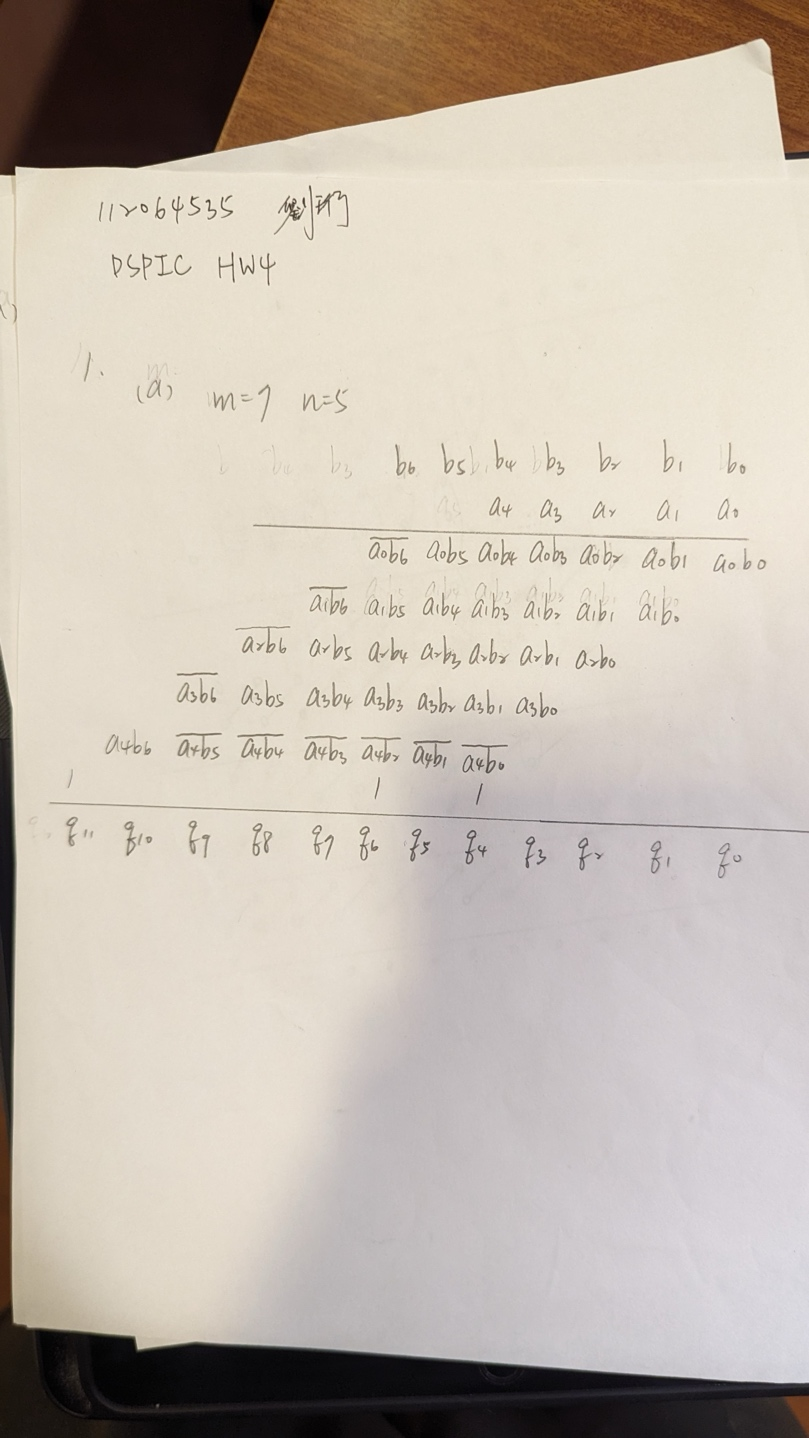 112064535 劉
DSPIC HW4
1.
(a) m=7 n=5
b6 b5 b4 b3 b2 b1 b0
a4 a3 a2 a1 a0
a̅0̅b̅6̅ a0b5 a0b4 a0b3 a0b2 a0b1 a0b0
a̅1̅b̅6̅ a1b5 a1b4 a1b3 a1b2 a1b1 a1b0
a̅2̅b̅6̅ a2b5 a2b4 a2b3 a2b2 a2b1 a2b0
a̅3̅b̅6̅ a3b5 a3b4 a3b3 a3b2 a3b1 a3b0
a4b6 a̅4̅b̅5̅ a̅4̅b̅4̅ a̅4̅b̅3̅ a̅4̅b̅2̅ a̅4̅b̅1̅ a̅4̅b̅0̅
1 1 1
q11 q10 q9 q8 q7 q6 q5 q4 q3 q2 q1 q0